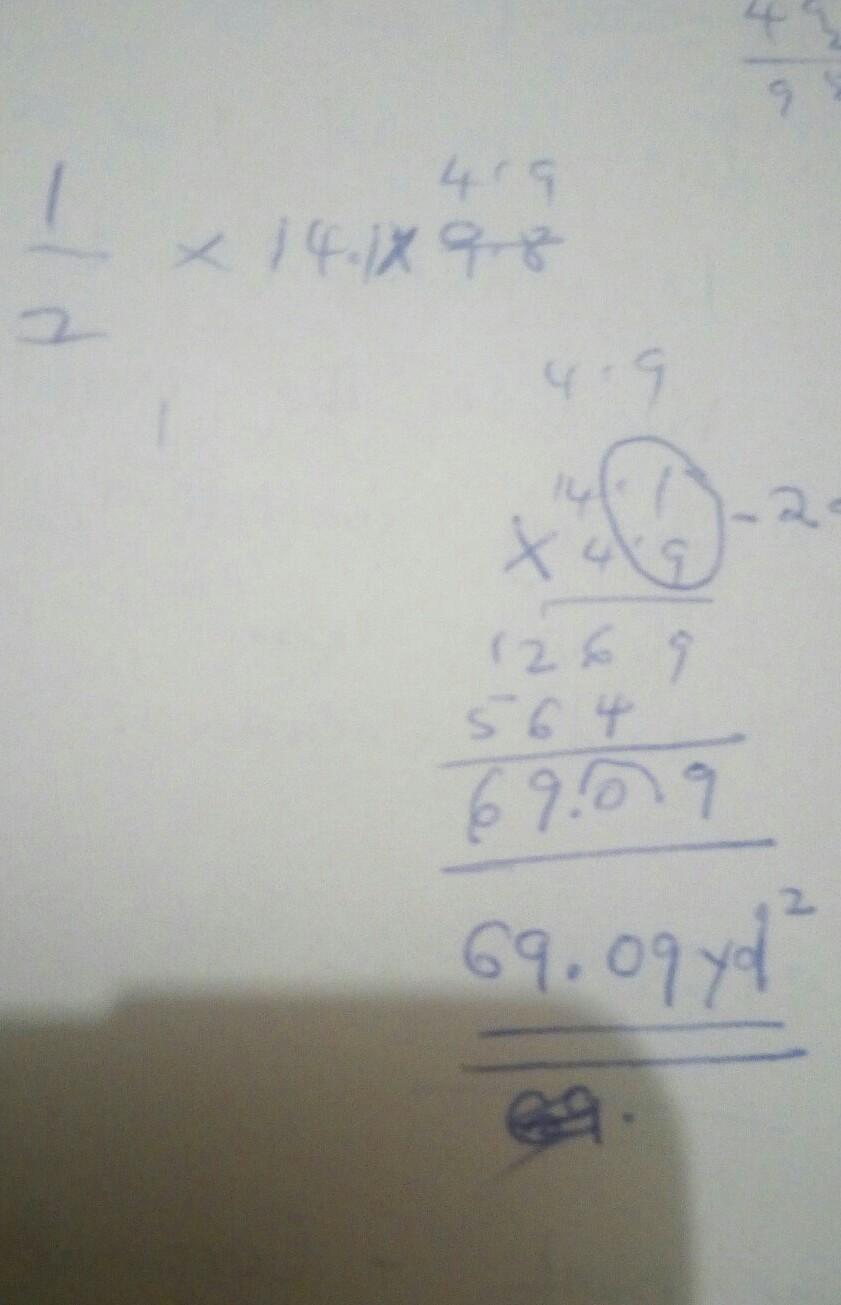 4 9
9 8
4.9
1/2 × 14.1 × 9.8
1
4.9
14.1 - 2
× 4.9
1269
564
69.09
69.09yd²